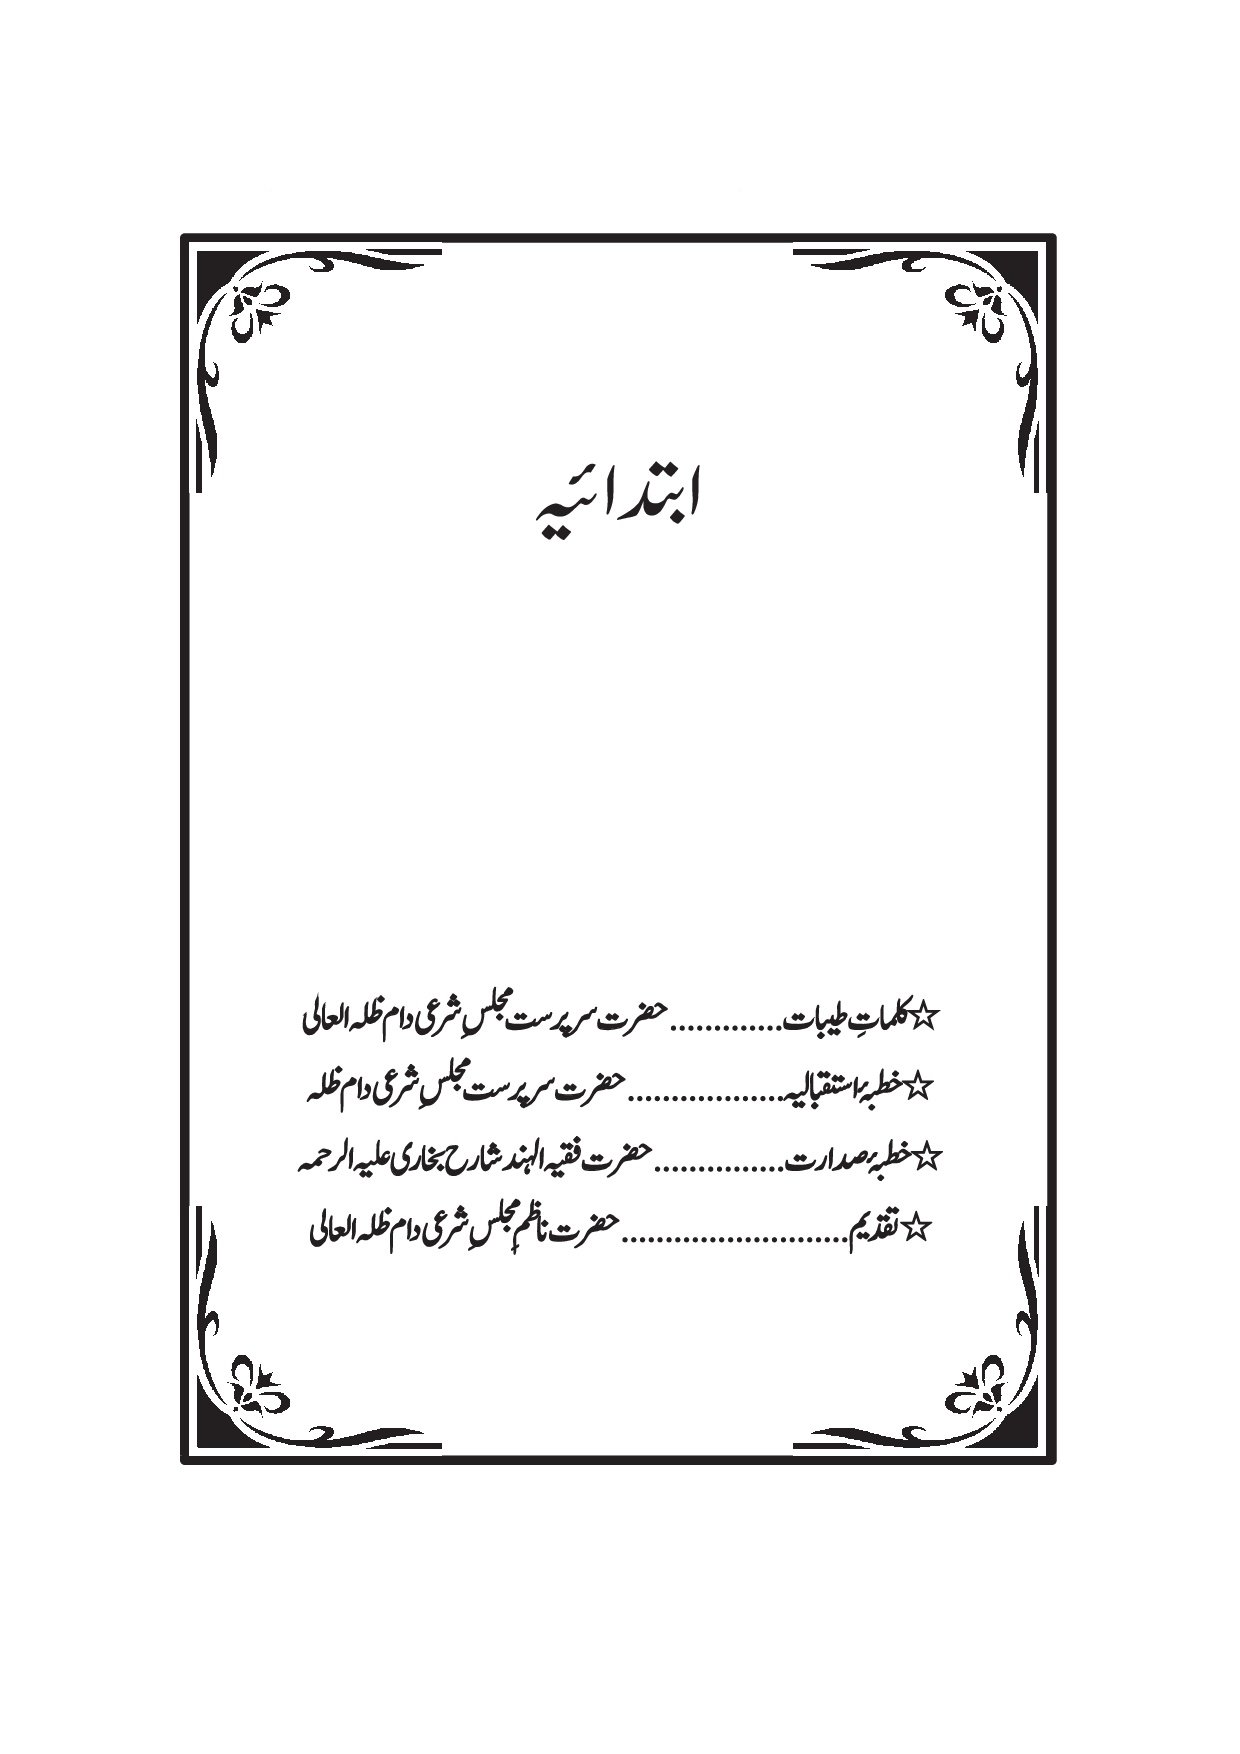 ابتدائیہ
☆کلماتِ طیبات.............حضرت سرپرست مجلسِ شرعی دام ظلہ العالی
☆خطبۂ استقبالیہ..................حضرت سرپرست مجلسِ شرعی دام ظلہ
☆خطبۂ صدارت...............حضرت فقیہ الہند شارح بخاری علیہ الرحمہ
☆تقدیم..........................حضرت ناظمِ مجلسِ شرعی دام ظلہ العالی